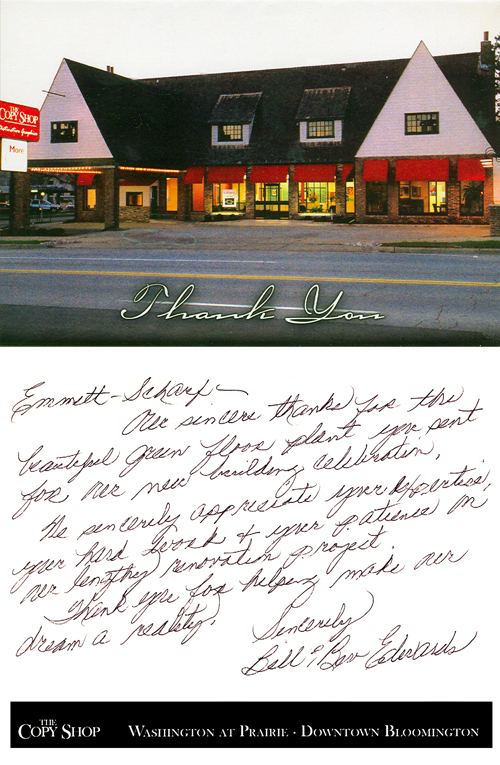 THE
COPY SHOP
Distinctive Graphics
More
Thank You
Emmett-Scharf -
Our sincere thanks for the
beautiful green floor plant you sent
for our new building celebration.
We sincerely appreciate your expertise,
your hard work & your patience in
our lengthy renovation project.
Thank you for helping make our
dream a reality.
Sincerely
Bill & Bev Edwards
THE
COPY SHOP
WASHINGTON AT PRAIRIE · DOWNTOWN BLOOMINGTON